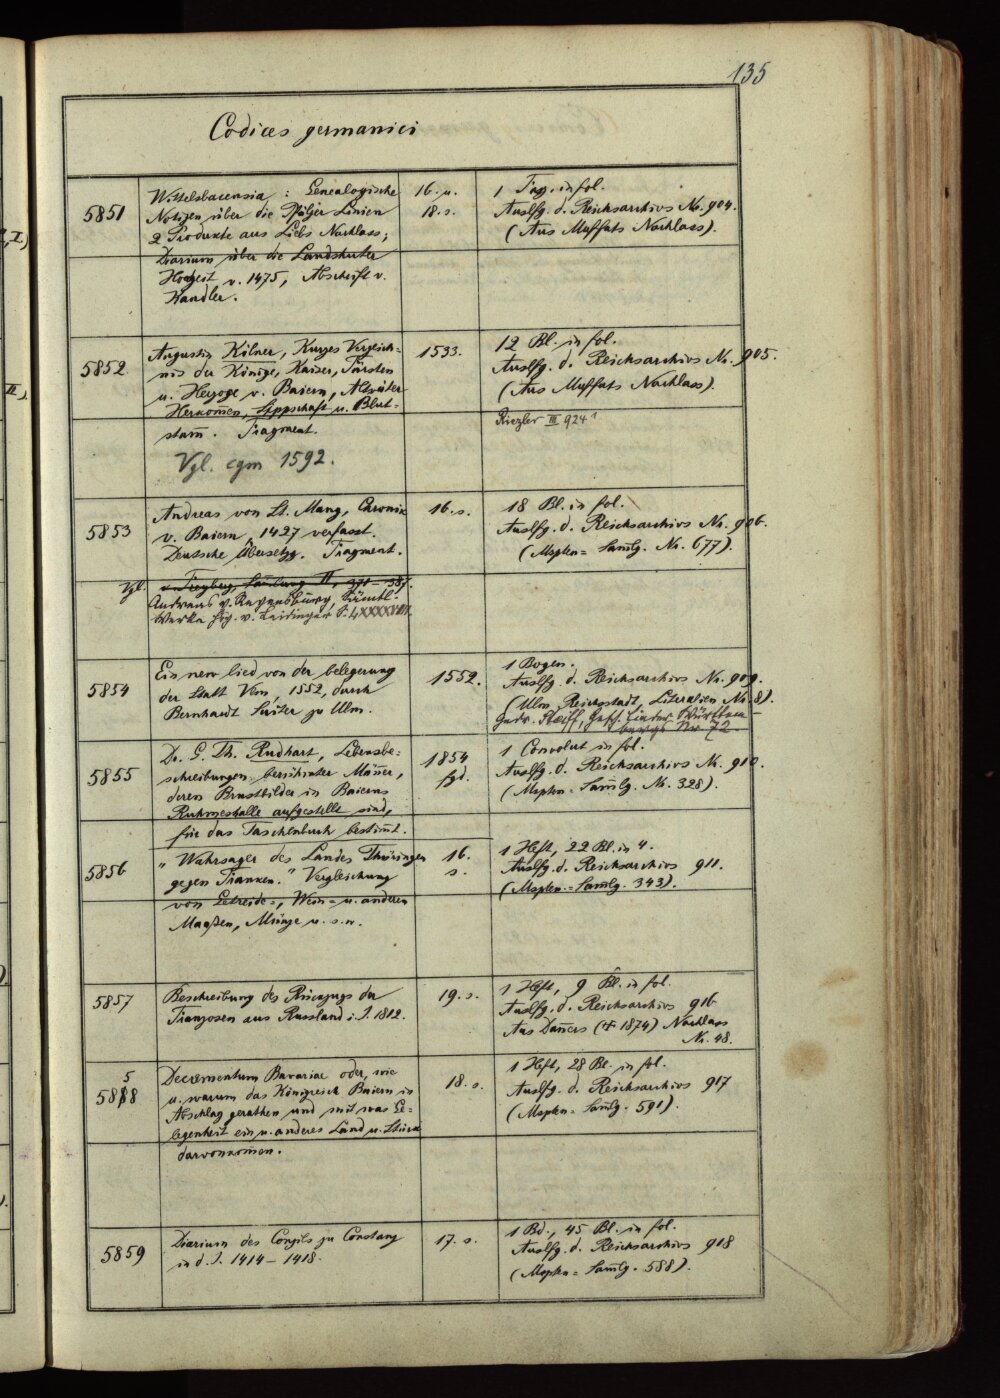 135
Codices germanici
5851
Wittelsbacensia : Genealogische
Notizen über die Pfälzer Linien
2 Produkte aus Liebs Nachlass;
Diarium über die Landshuter
Hochzeit v. 1475, Abschrift v.
Kandler.
16. u.
18. s.
1 Fasz. in fol.
Auslfg. d. Reichsarchivs Nr. 904.
(Aus Muffats Nachlass).
5852
Augustin Kölner, Kurzes Verzeich-
nis der Könige, Kaiser, Fürsten
u. Herzoge v. Baiern, Altväter
Herkom̄en, Sippschaft u. Blut-
stam̄. Fragment.
Vgl. cgm 1592.
1533.
12 Bl. in fol.
Auslfg. d. Reichsarchivs Nr. 905.
(Aus Muffats Nachlass).
Riezler III 924¹
5853
Andreas von St. Mang, Chronik
v. Baiern, 1427 verfasst.
Deutsche Übersetzg. Fragment.
Vgl. v. Freyberg, Sam̄lung II, 371–587.
Andreas v. Regensburg, Sämtl.
Werke hrg. v. Leidinger S.
16. s.
18 Bl. in fol.
Auslfg. d. Reichsarchivs Nr. 906.
(Mspten = Sam̄lg. Nr. 677).
5854
Ein new lied von der belegerung
der Statt Vlm, 1552, durch
Bernhardt Suiter zu Ulm.
1552.
1 Bogen.
Auslfg. d. Reichsarchivs Nr. 909.
(Ulm, Reichsstadt, Literalien Nr. 8).
Gedr. Steiff, Gesch. Lieder Württem-
bergs Nr 72.
5855
Dr. G. Th. Rudhart, Lebensbe-
schreibungen berühmter Män̄er,
deren Brustbilder in Baierns
Ruhmeshalle aufgestellt sind,
für das Taschenbuch bestim̄t.
1854
fgd.
1 Convolut in fol.
Auslfg. d. Reichsarchivs Nr. 910.
(Mspten - Sam̄lg. Nr. 328).
5856
„Wahrsager des Landes Thüringen
gegen Franken." Vergleichung
von Getreide-, Wein- u. anderen
Maaßen, Münze u. s. w.
16.
s.
1 Heft, 22 Bl. in 4.
Auslfg. d. Reichsarchivs 911.
(Mspten - Sam̄lg. 343).
5857
Beschreibung des Rückzugs der
Franzosen aus Russland i. J. 1812.
19. s.
1 Heft, 9 Bl. in fol.
Auslfg. d. Reichsarchivs 916
Aus Dan̄ers († 1874) Nachlass
Nr. 48.
5858
Decrementum Bavariae oder, wie
u. warum das Königreich Baiern in
Abschlag gerathen und mit was Ge-
legenheit ein u. anderes Land u. Stück
darvonkom̄en.
18. s.
1 Heft, 28 Bl. in fol.
Auslfg. d. Reichsarchivs 917
(Mspten - Sam̄lg. 591).
5859
Diarium des Conzils zu Constanz
in d. J. 1414 – 1418.
17. s.
1 Bd., 45 Bl. in fol.
Auslfg. d. Reichsarchivs 918
(Mspten - Sam̄lg. 588).